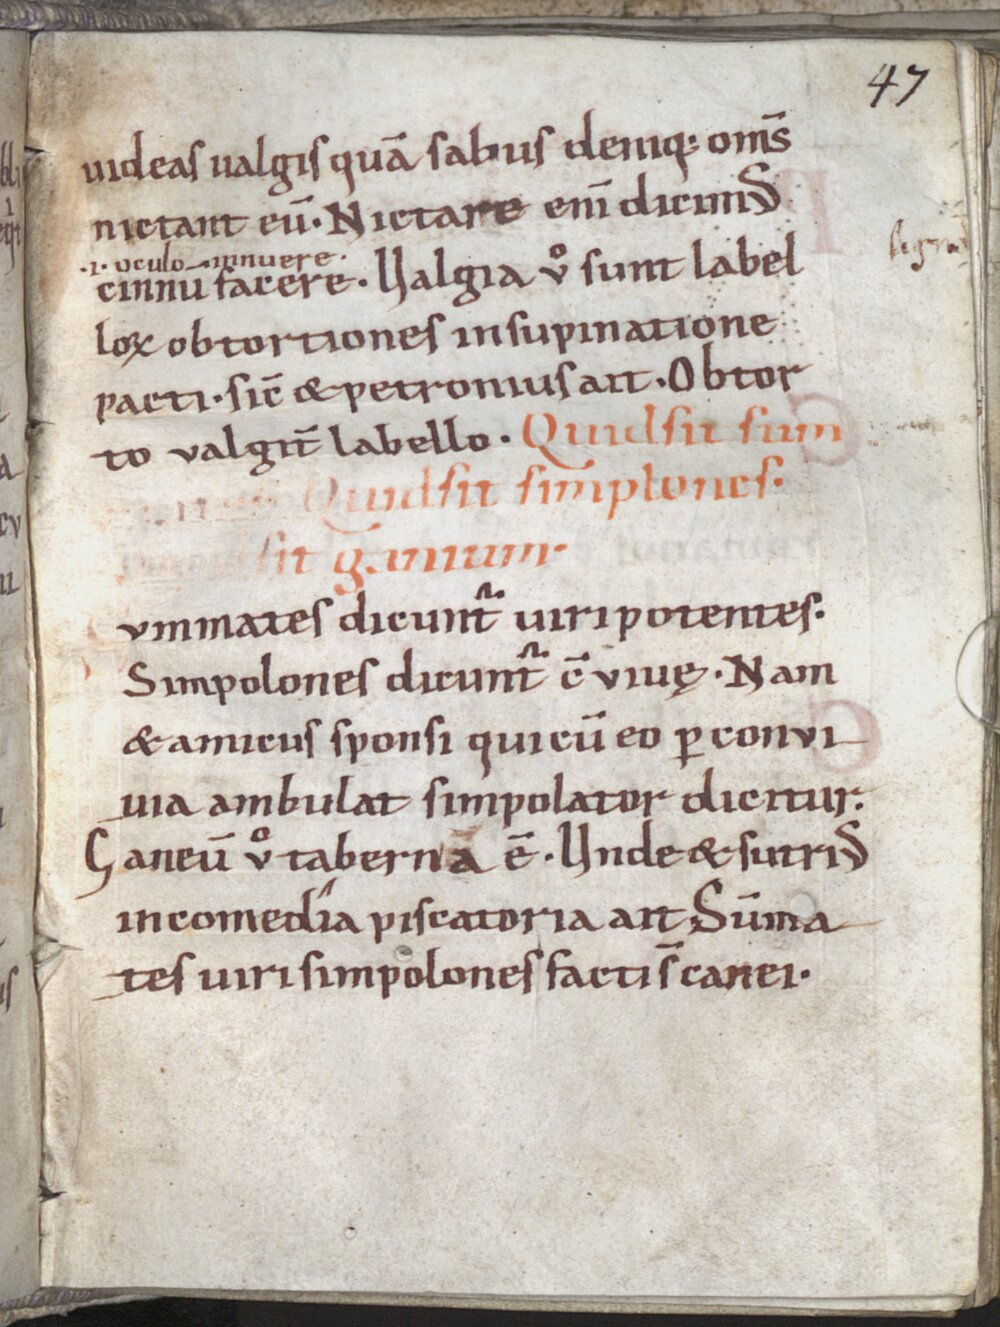 47
uideas ualgis quā sabuus deniq; oms̄
nictant eū· Nictare eni̅ dicimꝰ
·ı· oculo innuere·
cinnu facere· Ualgia v̊ sunt label
loꝝ obtortiones in supinatione
pacti· sic̄ & petronius ait· Obtor
to valgit̄ labello· Quid sit sum
Quid sit simplones·
sit ganeum
ummates dicunt̄ uiri potentes·
Simpolones dicunt̄ c̄ viuę· Nam
& amicus sponsi qui cū eo ꝑ convi
uia ambulat simpolator dicitur·
Ganeū v̊ taberna ē· Unde & sutriꝰ
in comedia piscatoria ait Sūma
tes uiri simpolones facti s̄ canei·